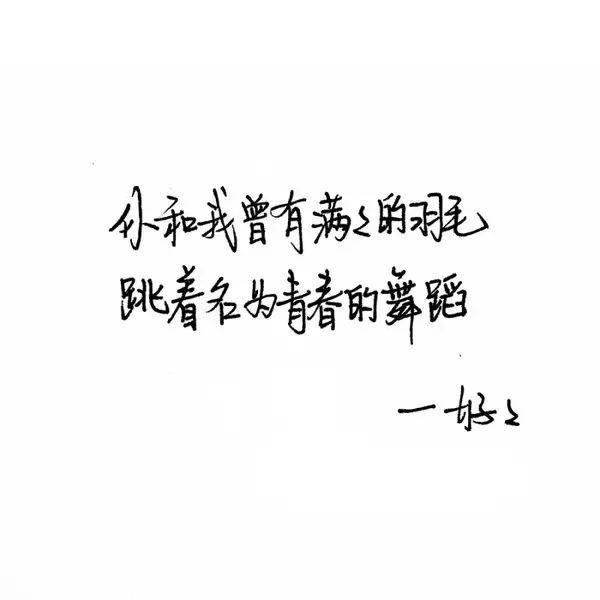 你和我曾有满满的羽毛
跳着名为青春的舞蹈
—好好